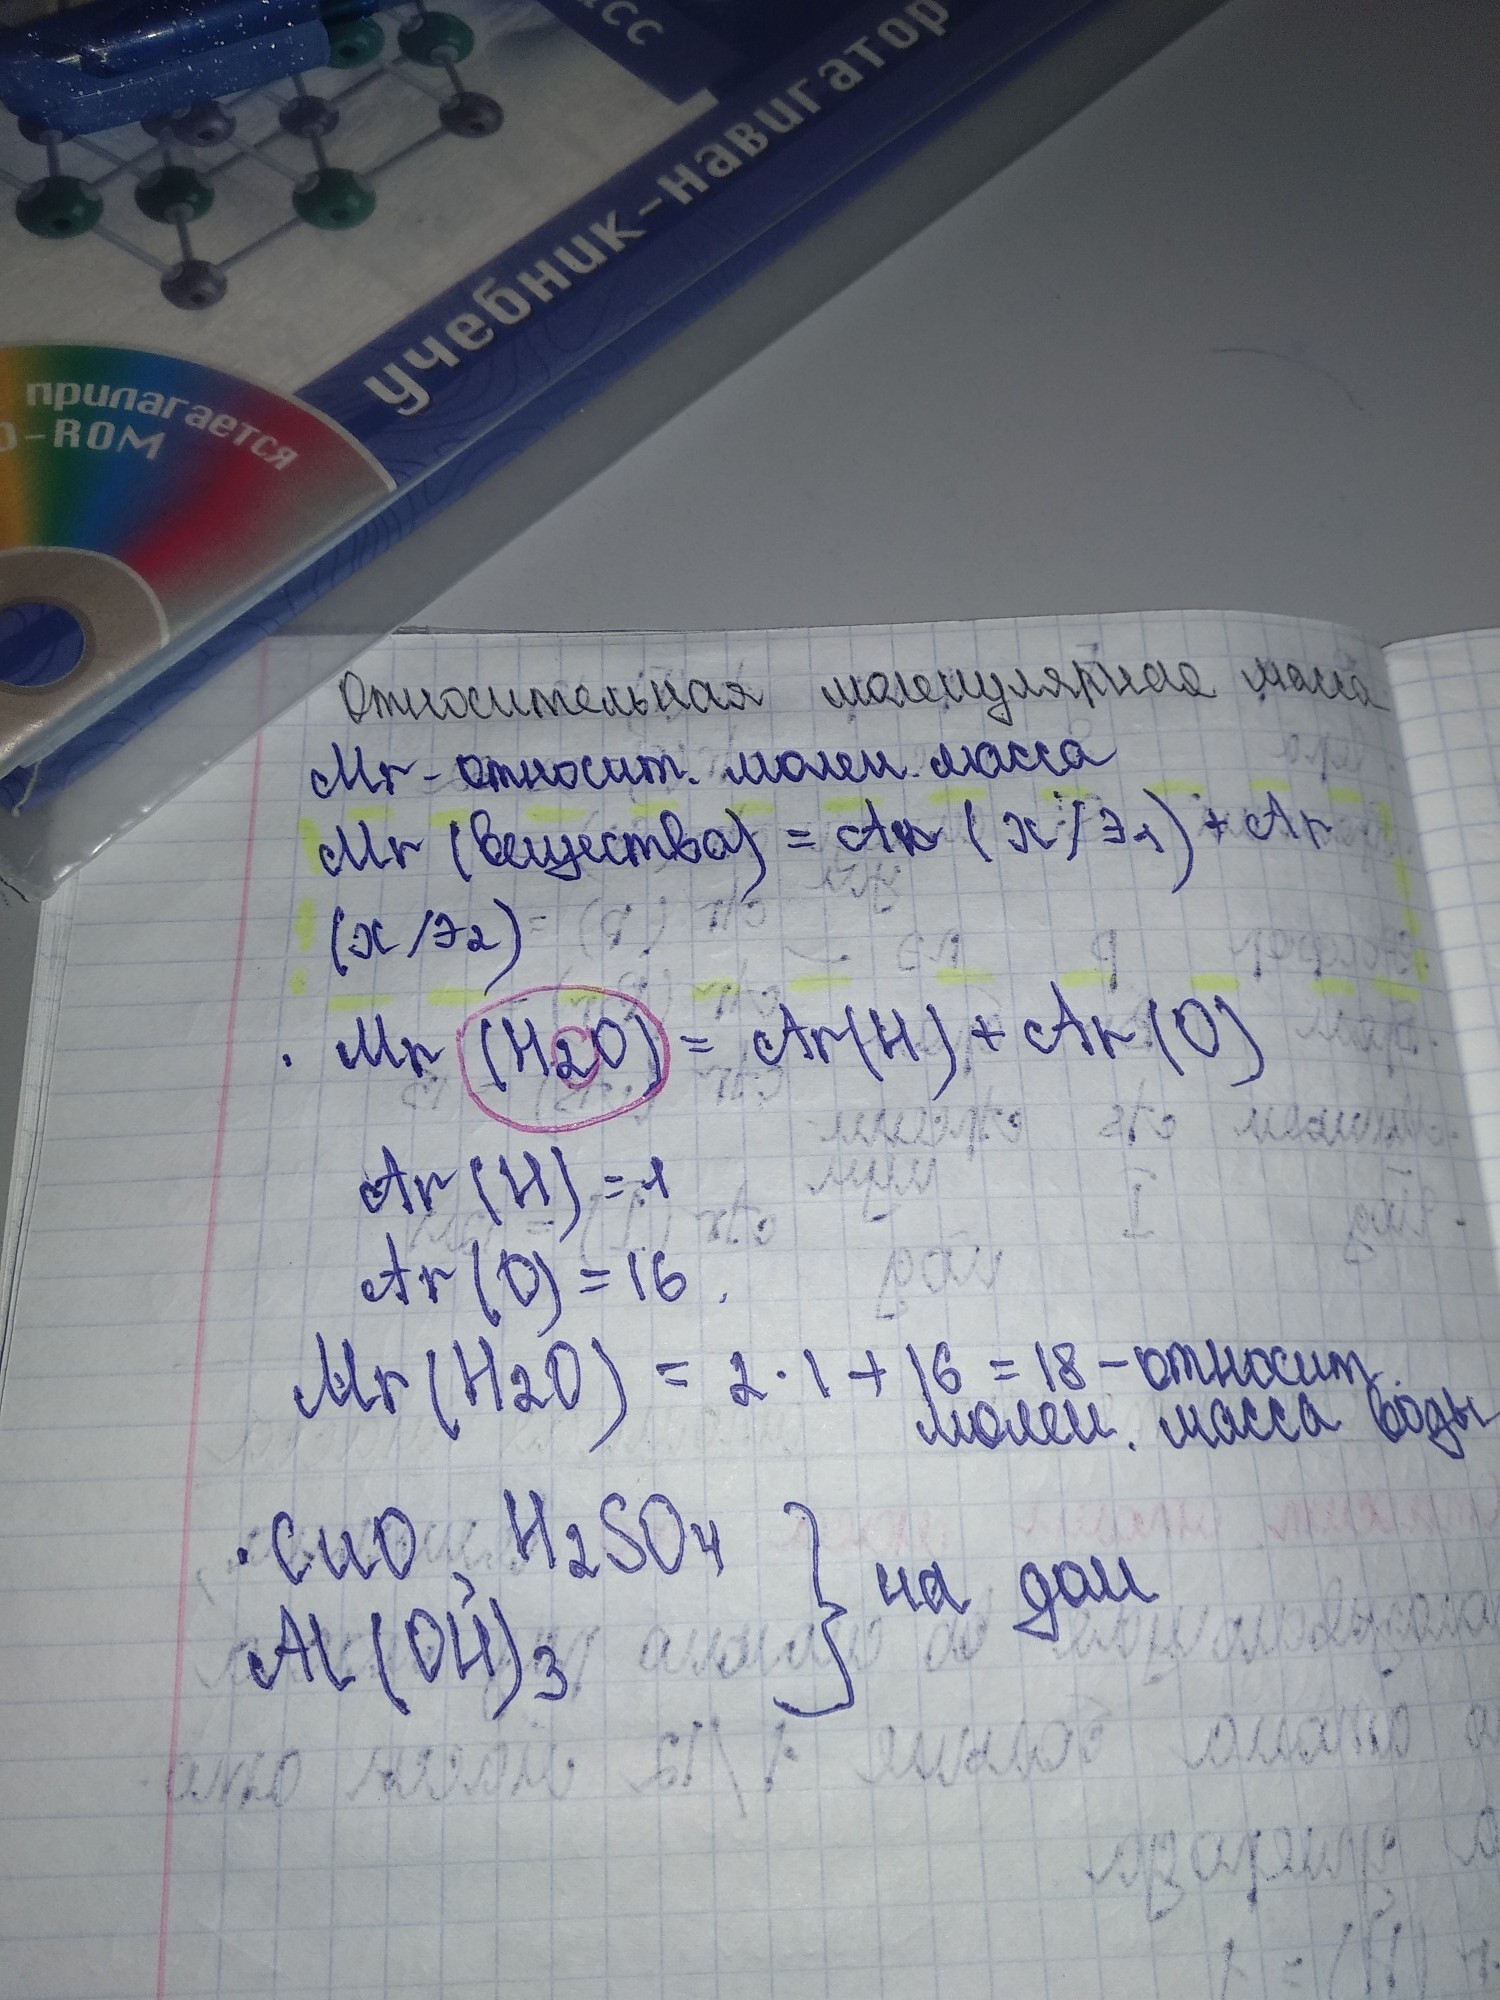 сс
учебник-навигатор
прилагается
D-ROM
Относительная молекулярная масса
Mr - относит. молек. масса
Mr (вещества) = Ar (х/э1) + Ar
(х/э2)
· Mr (H2O) = Ar(H) + Ar(O)
Ar(H) = 1
Ar(O) = 16.
Mr(H2O) = 2·1 + 16 = 18 - относит.
молек. масса воды
· CuO, H2SO4 } на дом
Al(OH)3